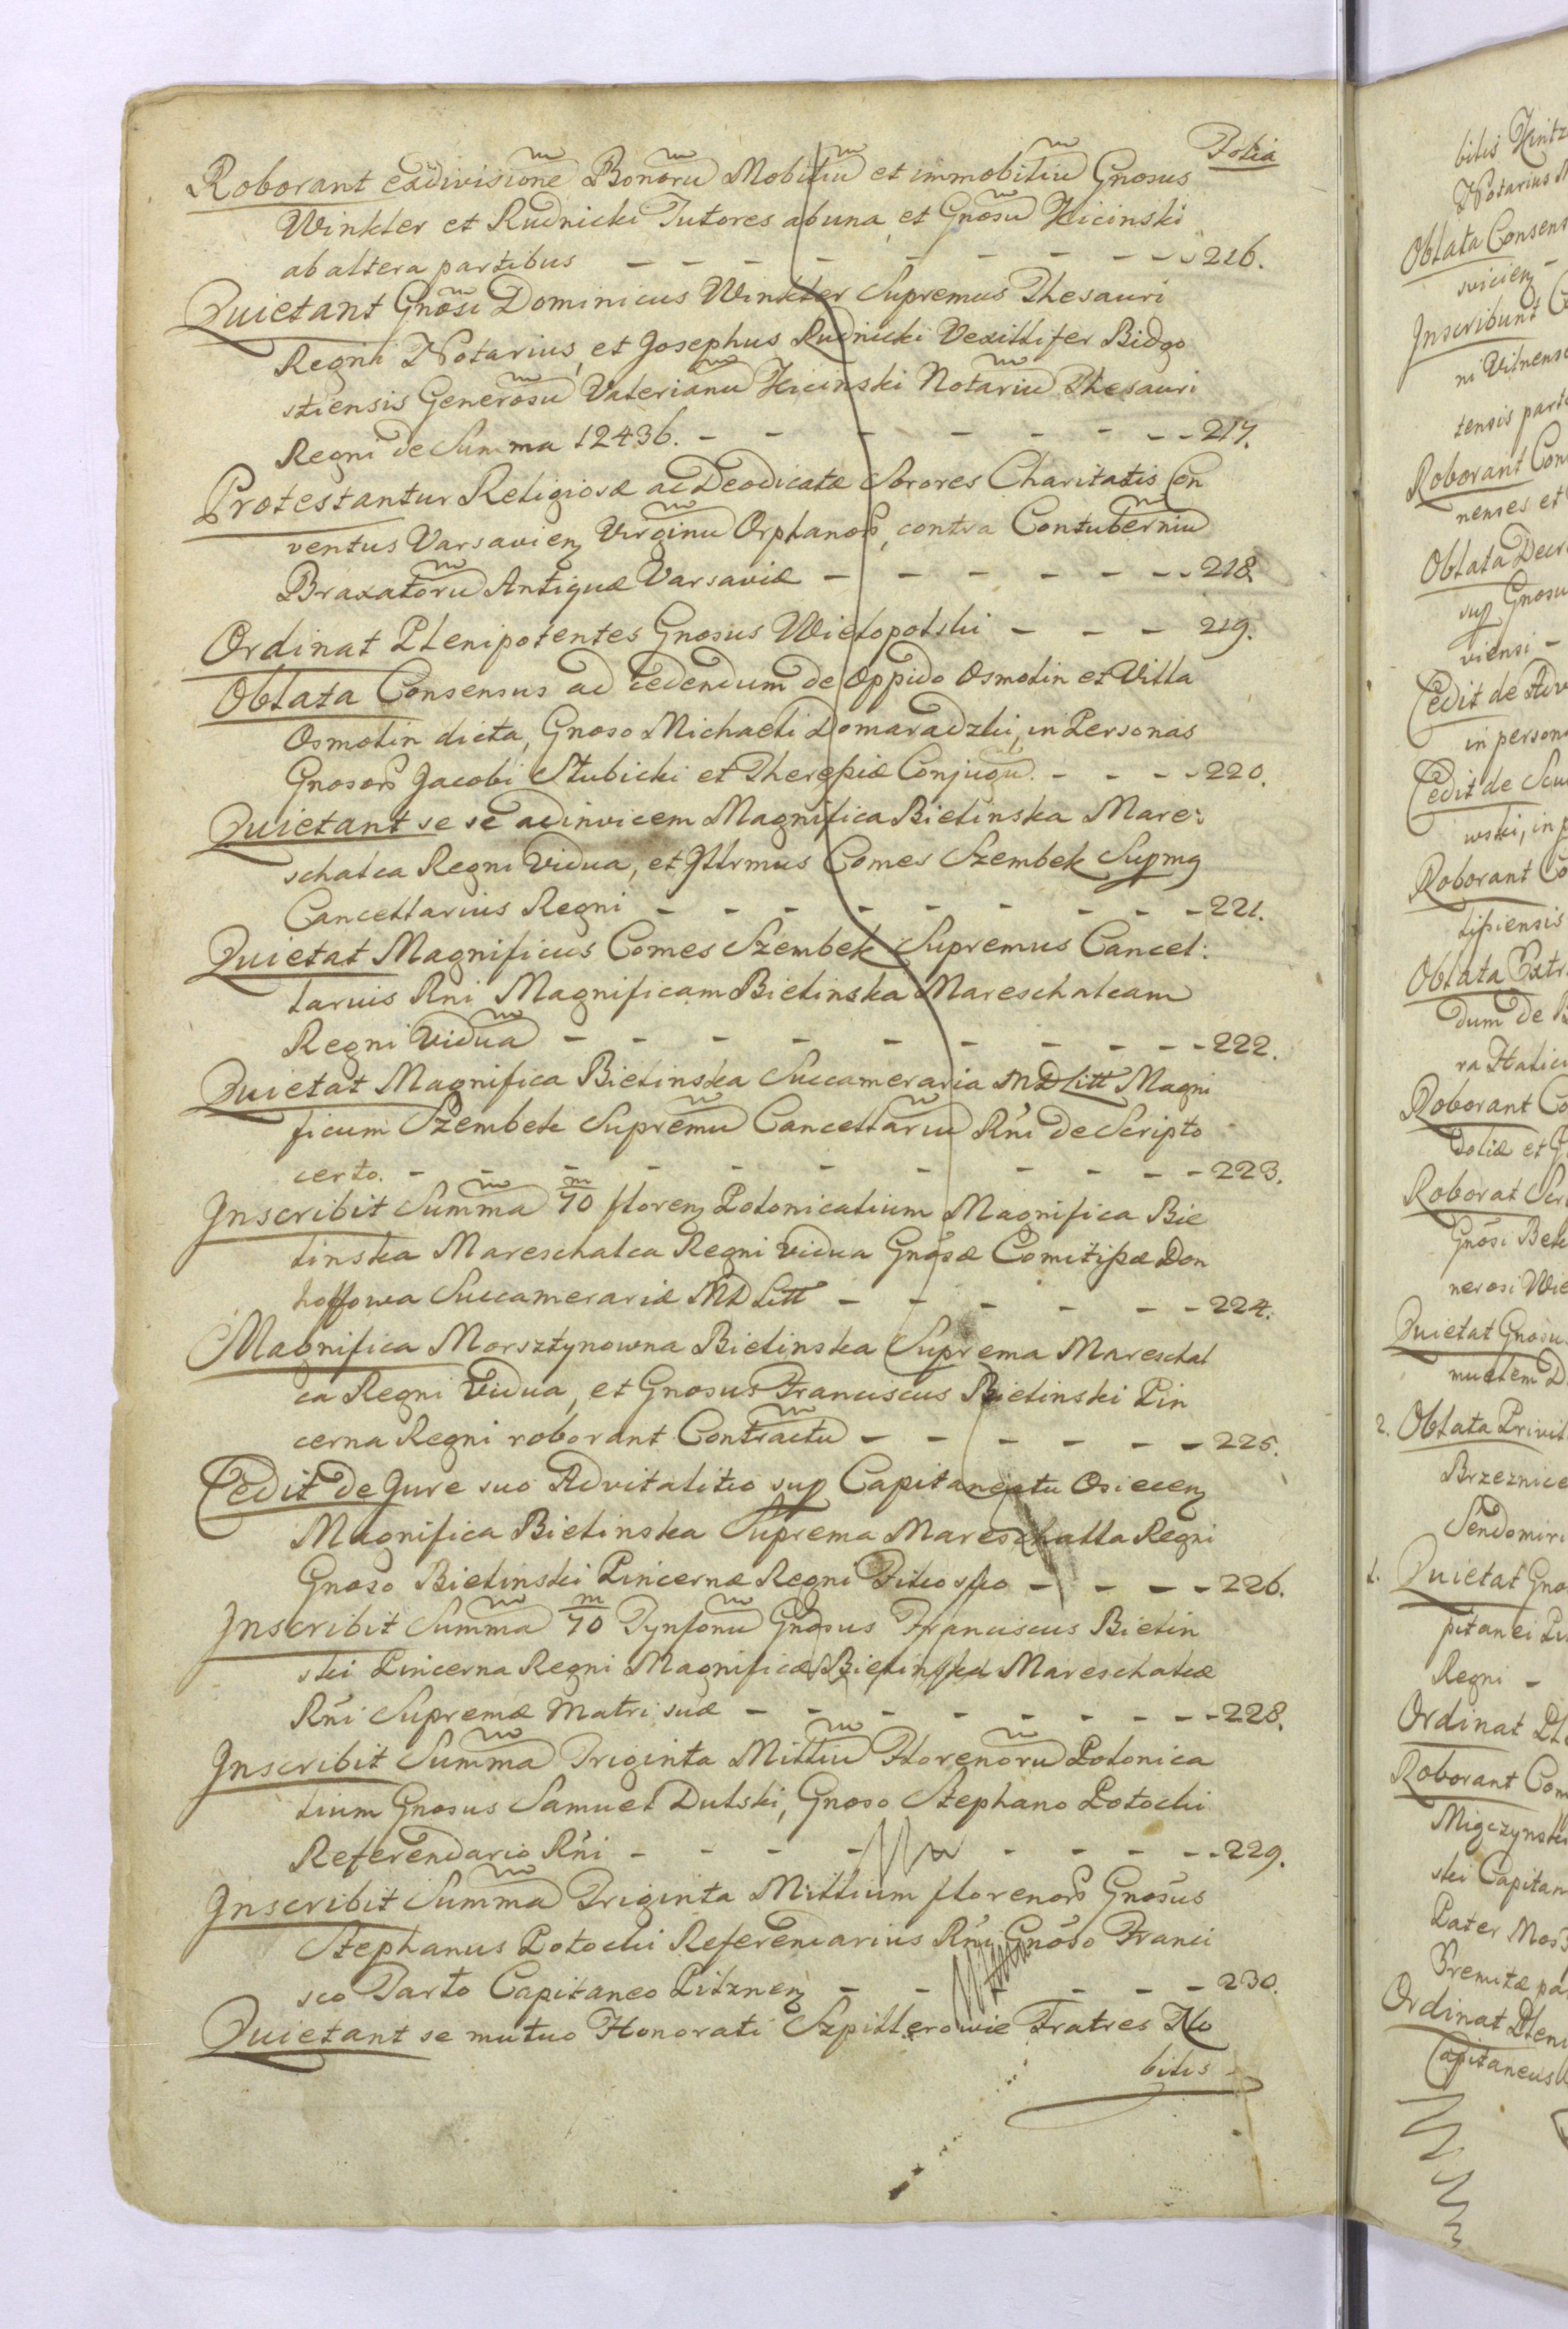 Folia
Roborant exdivisione Bonoru Mobiliu et immobiliu Gnosus
Winkler et Rudnicki Tutores ab una, et Gnosu Kicinski
ab altera partibus - - - - - - - - - 216.
Quietant Gnosi Dominicus Winkler Supremus Thesauri
Regni Notarius, et Josephus Rudnicki Vexillifer Bidgo
stiensis Generosu Valerianu Kicinski Notariu Thesauri
Regni de Summa 12436. - - - - - - - - 217.
Protestantur Religiosæ ac Deodicatæ Sorores Charitatis Con
ventus Varsavien Virginu Orphanor, contra Contuberniu
Braxatoru Antiquæ Varsaviæ - - - - - - - 218.
Ordinat Plenipotentes Gnosus Wielopolski - - - 219.
Oblata Consensus ad cedendum de Oppido Osmolin et Villa
Osmolin dicta, Gnoso Michaeli Domaradzki, in Personas
Gnosor Jacobi Slubicki et Theressiæ Conjugu. - - - - 220.
Quietant se se adinvicem Magnifica Bielinska Mare:
schalca Regni Vidua, et Jllrmus Comes Szembek Supmg
Cancellarius Regni - - - - - - - - - 221.
Quietat Magnificus Comes Szembek Supremus Cancel:
larius Rni Magnificam Bielinska Mareschalcam
Regni Vidua - - - - - - - - - 222.
Quietat Magnifica Bielinska Succameraria MDLitt Magni
ficum Szembek Supremu Cancellariu Rni de Scripto
certo. - - - - - - - - - - - 223.
Jnscribit Summa m/70 floren Polonicalium Magnifica Bie
linska Mareschalca Regni Vidua Gnosæ Comitissæ Don
hoffowa Succamerariæ MDLitt - - - - - - 224.
Magnifica Morsztynowna Bielinska Suprema Mareschal
ca Regni Vidua, et Gnosus Franciscus Bielinski Pin
cerna Regni roborant Contractu - - - - - - 225.
Cedit de Jure suo Advitalitio sup Capitaneatu Osiecen
Magnifica Bielinska Suprema Mareschalca Regni
Gnoso Bielinski Pincernæ Regni Filio suo - - - - 226.
Jnscribit Summa m/70 Tynfonu Gnosus Franciscus Bielin
ski Pincerna Regni Magnificæ Bielinska Mareschalcæ
Rni Supremæ Matri suæ - - - - - - - - 228.
Jnscribit Summa Triginta Milliu Florenoru Polonica
lium Gnosus Samuel Dulski, Gnoso Stephano Potocki
Referendario Rni - - - - - - - - 229.
Jnscribit Summa Triginta Millium florenor Gnosus
Stephanus Potocki Referendarius Rni Gnoso Franci
sco Tarlo Capitaneo Pilznen - - - - - 230.
Quietant se mutuo Honorati Szpillerowie Fratres No
bilis
bilis
Notarius
Oblata Consens
Jnscribunt
ni Vilnens
Roborant Con
nenses et
Oblata Decr
sup Gnosu
viensi -
Cedit de
in person
Cedit de
wski, in
Roborant Co
Oblata Extr
dum de
ra Halici
Roborant Co
doliæ et
Roborat Scr
Gnosi
nerosi
Quietat Gnosu
2. Oblata Privil
Brzeznice
Sendomiri
1. Quietat Gno
pitanei
Regni -
Ordinat Ple
Roborant Con
Miączynski
ski Capitan
Pater
Ordinat Pleni
Capitaneus